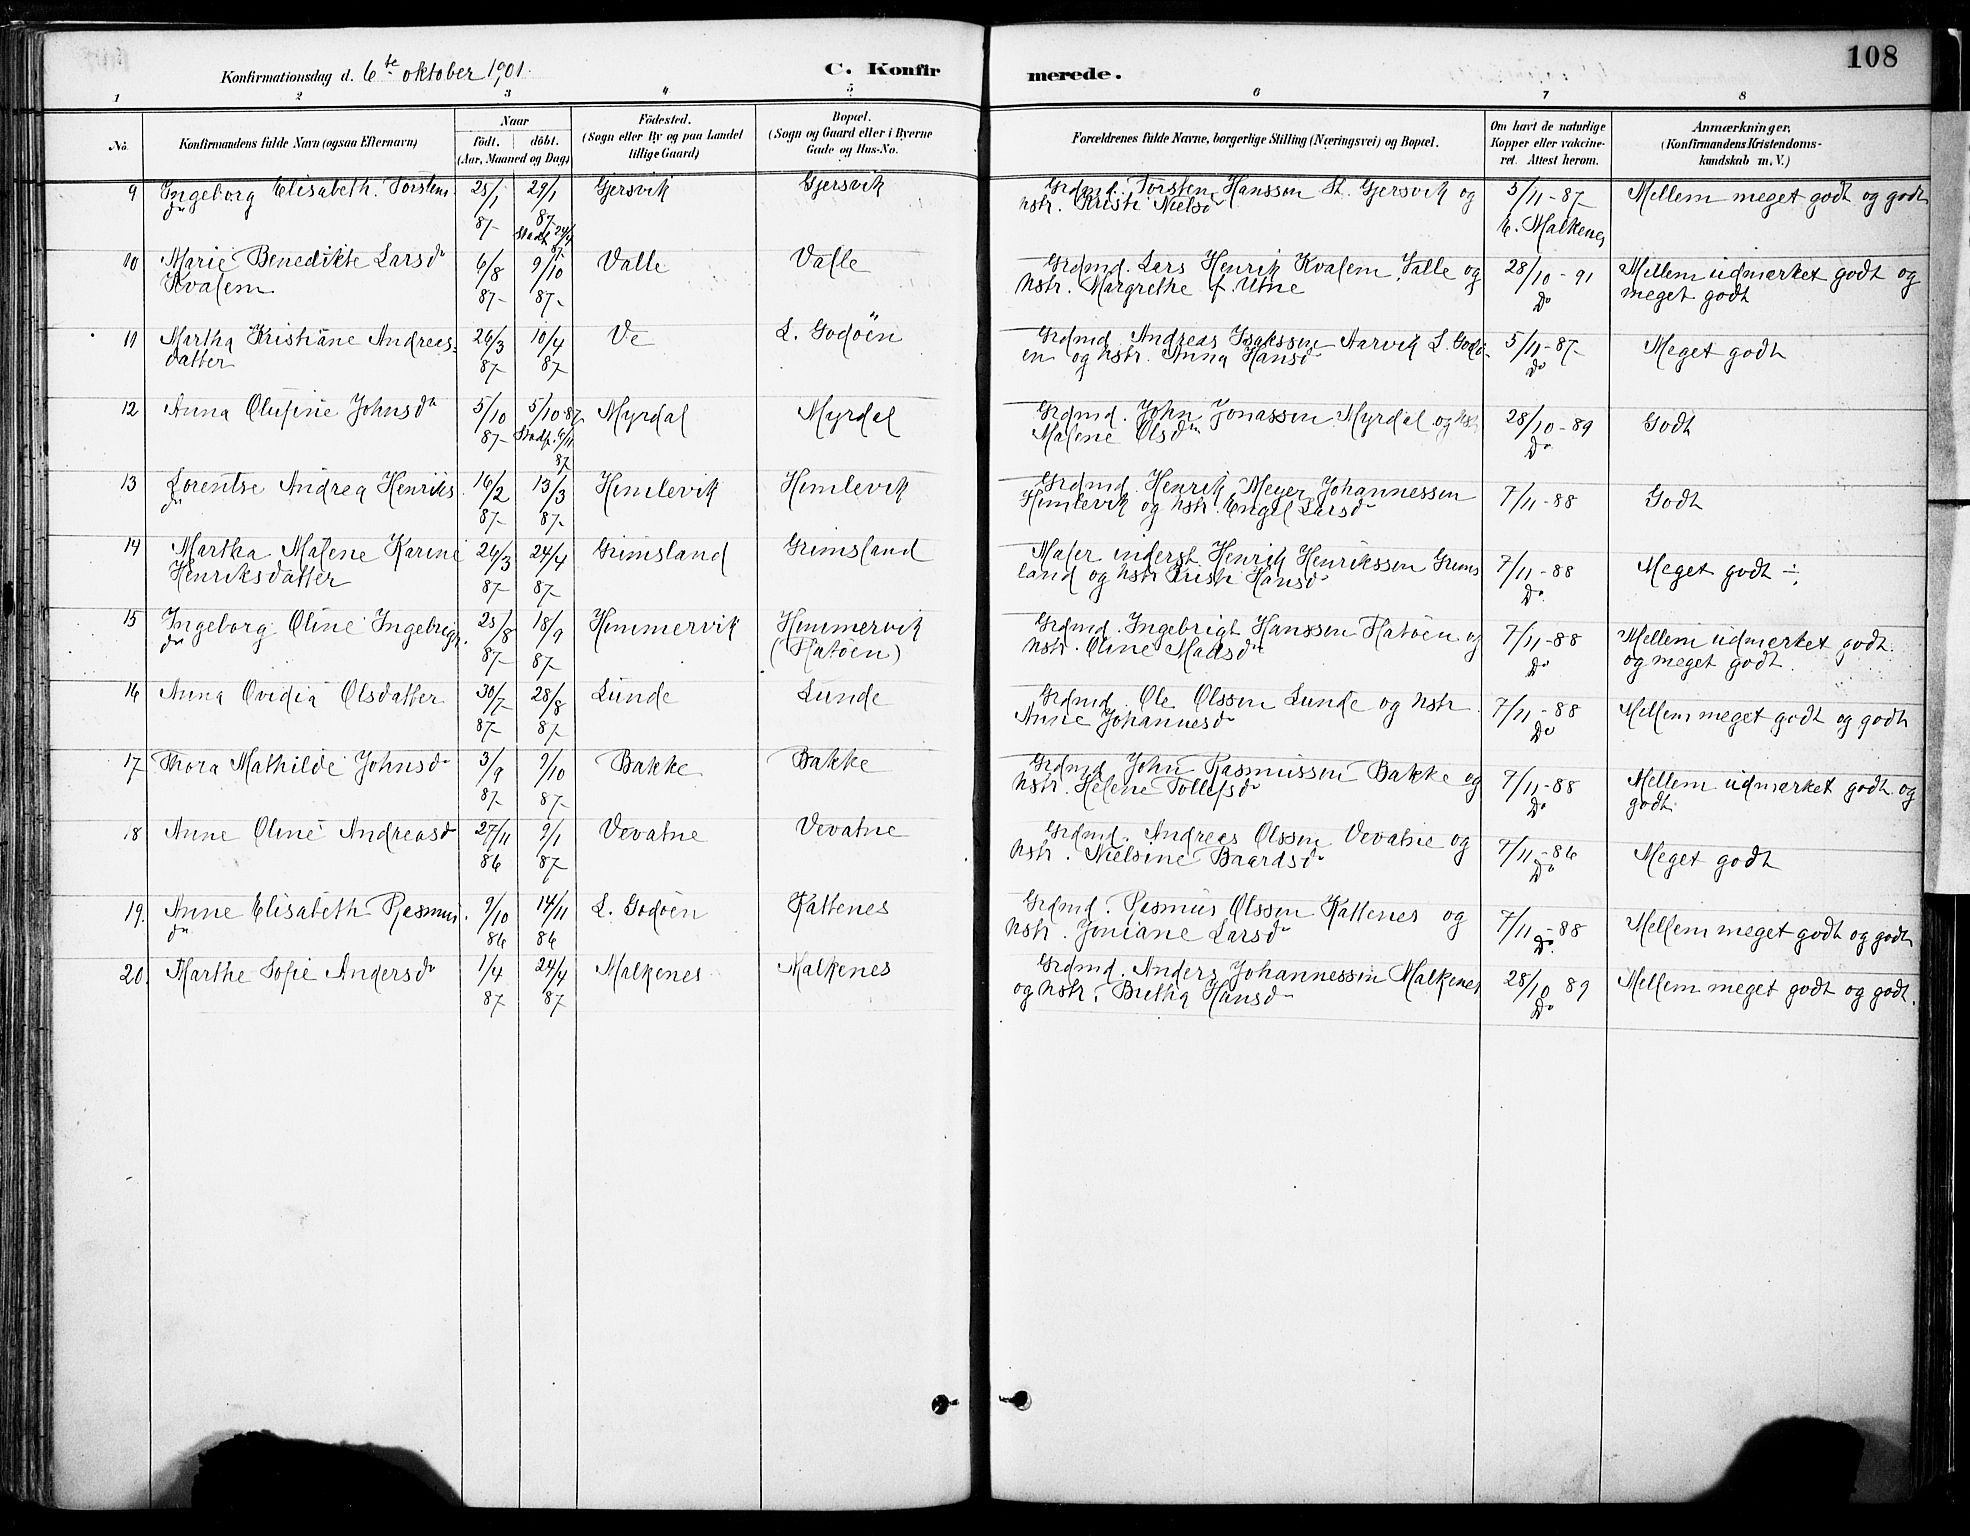 108
Konfirmationsdag d. 6te oktober 1901.
C. Konfirmerede.
1 2 3 4 5 6 7 8
No. Konfirmandens fulde Navn (ogsaa Efternavn) Naar födt. döbt. (Aar, Maaned og Dag) Födested. (Sogn eller By og paa Landet tillige Gaard) Bopæl. (Sogn og Gaard eller i Byerne Gade og Hus-No. Forældrenes fulde Navne, borgerlige Stilling (Næringsvei) og Bopæl. Om havt de naturlige Kopper eller vaccineret. Attest herom. Anmærkninger. (Konfirmandens Kristendomskundskab m. V.)
9 Ingeborg Elisabeth Torstens- 25/1 29/1 Gjersvik Gjersvik Grdmd. Torsten Hanssen St. Gjersvik og 5/11-87 Mellem meget godt og godt
dr 87- 87- Stadf. 24/4 87 hstr. Kristi Nielsdr E. Malkenes
10 Marie Benedikte Larsdr 6/8 9/10 Valle Valle Grdmd. Lars Henrik Kvalem Valle og 28/10-91 Mellem udmærket godt og
Kvalem 87- 87- hstr. Margrethe f. Utne Do meget godt
11 Martha Kristiane Andreas- 26/3 10/4 Ve L. Godöen Grdmd. Andreas Isakssen Aarvik L. Godö- 5/11-87- Meget godt
datter 87- 87 en og hstr. Anna Hansdr Do
12 Anna Olufine Johnsdr 5/10 5/10 87 Myrdal Myrdal Grdmd. John Jonassen Myrdal og hstr 28/10-89 Godt
87- Stadf. 6/11 87 Malene Olsdr Do
13 Lorentse Andrea Henriks. 16/2 13/3 Himlevik Himlevik Grdmd. Henrik Meyer Johannessen 7/11-88 Godt
dr 87- 87- Himlevik og hstr. Engel Larsdr
14 Martha Malene Karine 26/3 24/4 Grimsland Grimsland Maler inderst Henrik Henrikssen Grims 7/11-88 Meget godt ÷
Henriksdatter 87- 87- land og hstr Kristi Hansdr Do
15 Ingeborg Oline Ingebrigt. 25/8 18/9 Himmervik Himmervik Grdmd. Ingebrigt Hanssen Hatöen og 7/11-88 Mellem udmerket godt
dr 87- 87 (Hatöen) hstr. Oline Madsdr Do og meget godt
16 Anna Ovidia Olsdatter 30/7 28/8 Lunde Lunde Grdmd. Ole Olssen Lunde og hstr. 7/11-88 Mellem meget godt og godt
87- 87- Anne Johannesdr Do
17 Thora Mathilde Johnsdr 3/9 9/10 Bakke Bakke Grdmd John Rasmussen Bakke og 7/11-88 Mellem udmærket godt og
87- 87- hstr. Helene Tollefsdr Do godt
18 Anne Oline Andreasdr 27/11 9/1 Vevatne Vevatne Grdmd. Andreas Olssen Vevatne og 7/11-86 Meget godt
86 87- hstr. Nielsine Baardsdr Do
19. Anne Elisabeth Rasmus. 9/10 14/11 L. Godöen Kattenes Grdmd. Rasmus Olssen Kattenes og 7/11-88 Mellem meget godt og godt
dr 86 86 hstr. Joniane Larsdr Do
20. Marthe Sofie Andersdr 1/4 24/4 Malkenes Malkenes Grdmd. Anders Johannessen Malkenes 28/10 89 Mellem meget godt og godt.
87 87- og hstr. Britha Hansdr Do